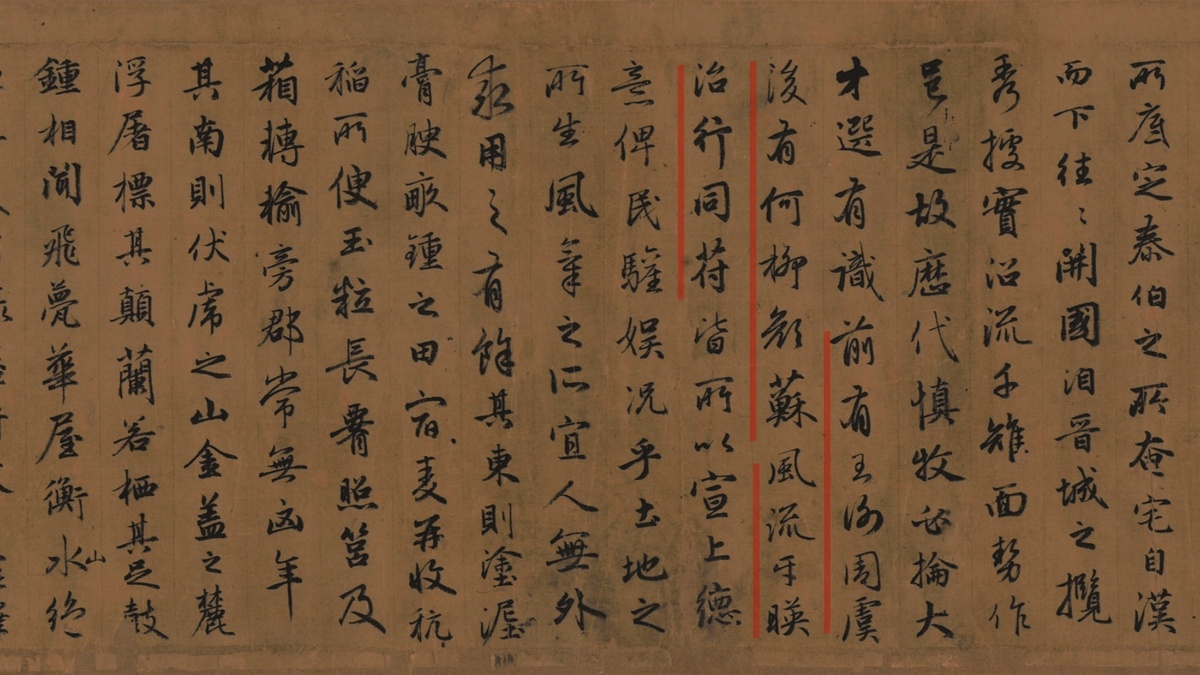 所底定泰伯之所奄宅自漢
而下往〻開國洎晉城之攬
秀據實沿流千雉面勢作
邑是故歷代慎牧必掄大
才選有識前有王謝周虞
後有何柳顏蘇風流互暎
治行同苻皆所以宣上德
意俾民驩娱況乎土地之
所生風氣之所宜人無外
求用之有餘其東則塗泥
膏腴畝鍾之田宿麦再收秔
稻所便玉粒長𦝫照筥及
箱轉輸旁郡常無凶年
其南則伏虎之山金盖之麓
浮屠標其顛蘭若栖其足鼓
鍾相聞飛甍華屋衡山水絶